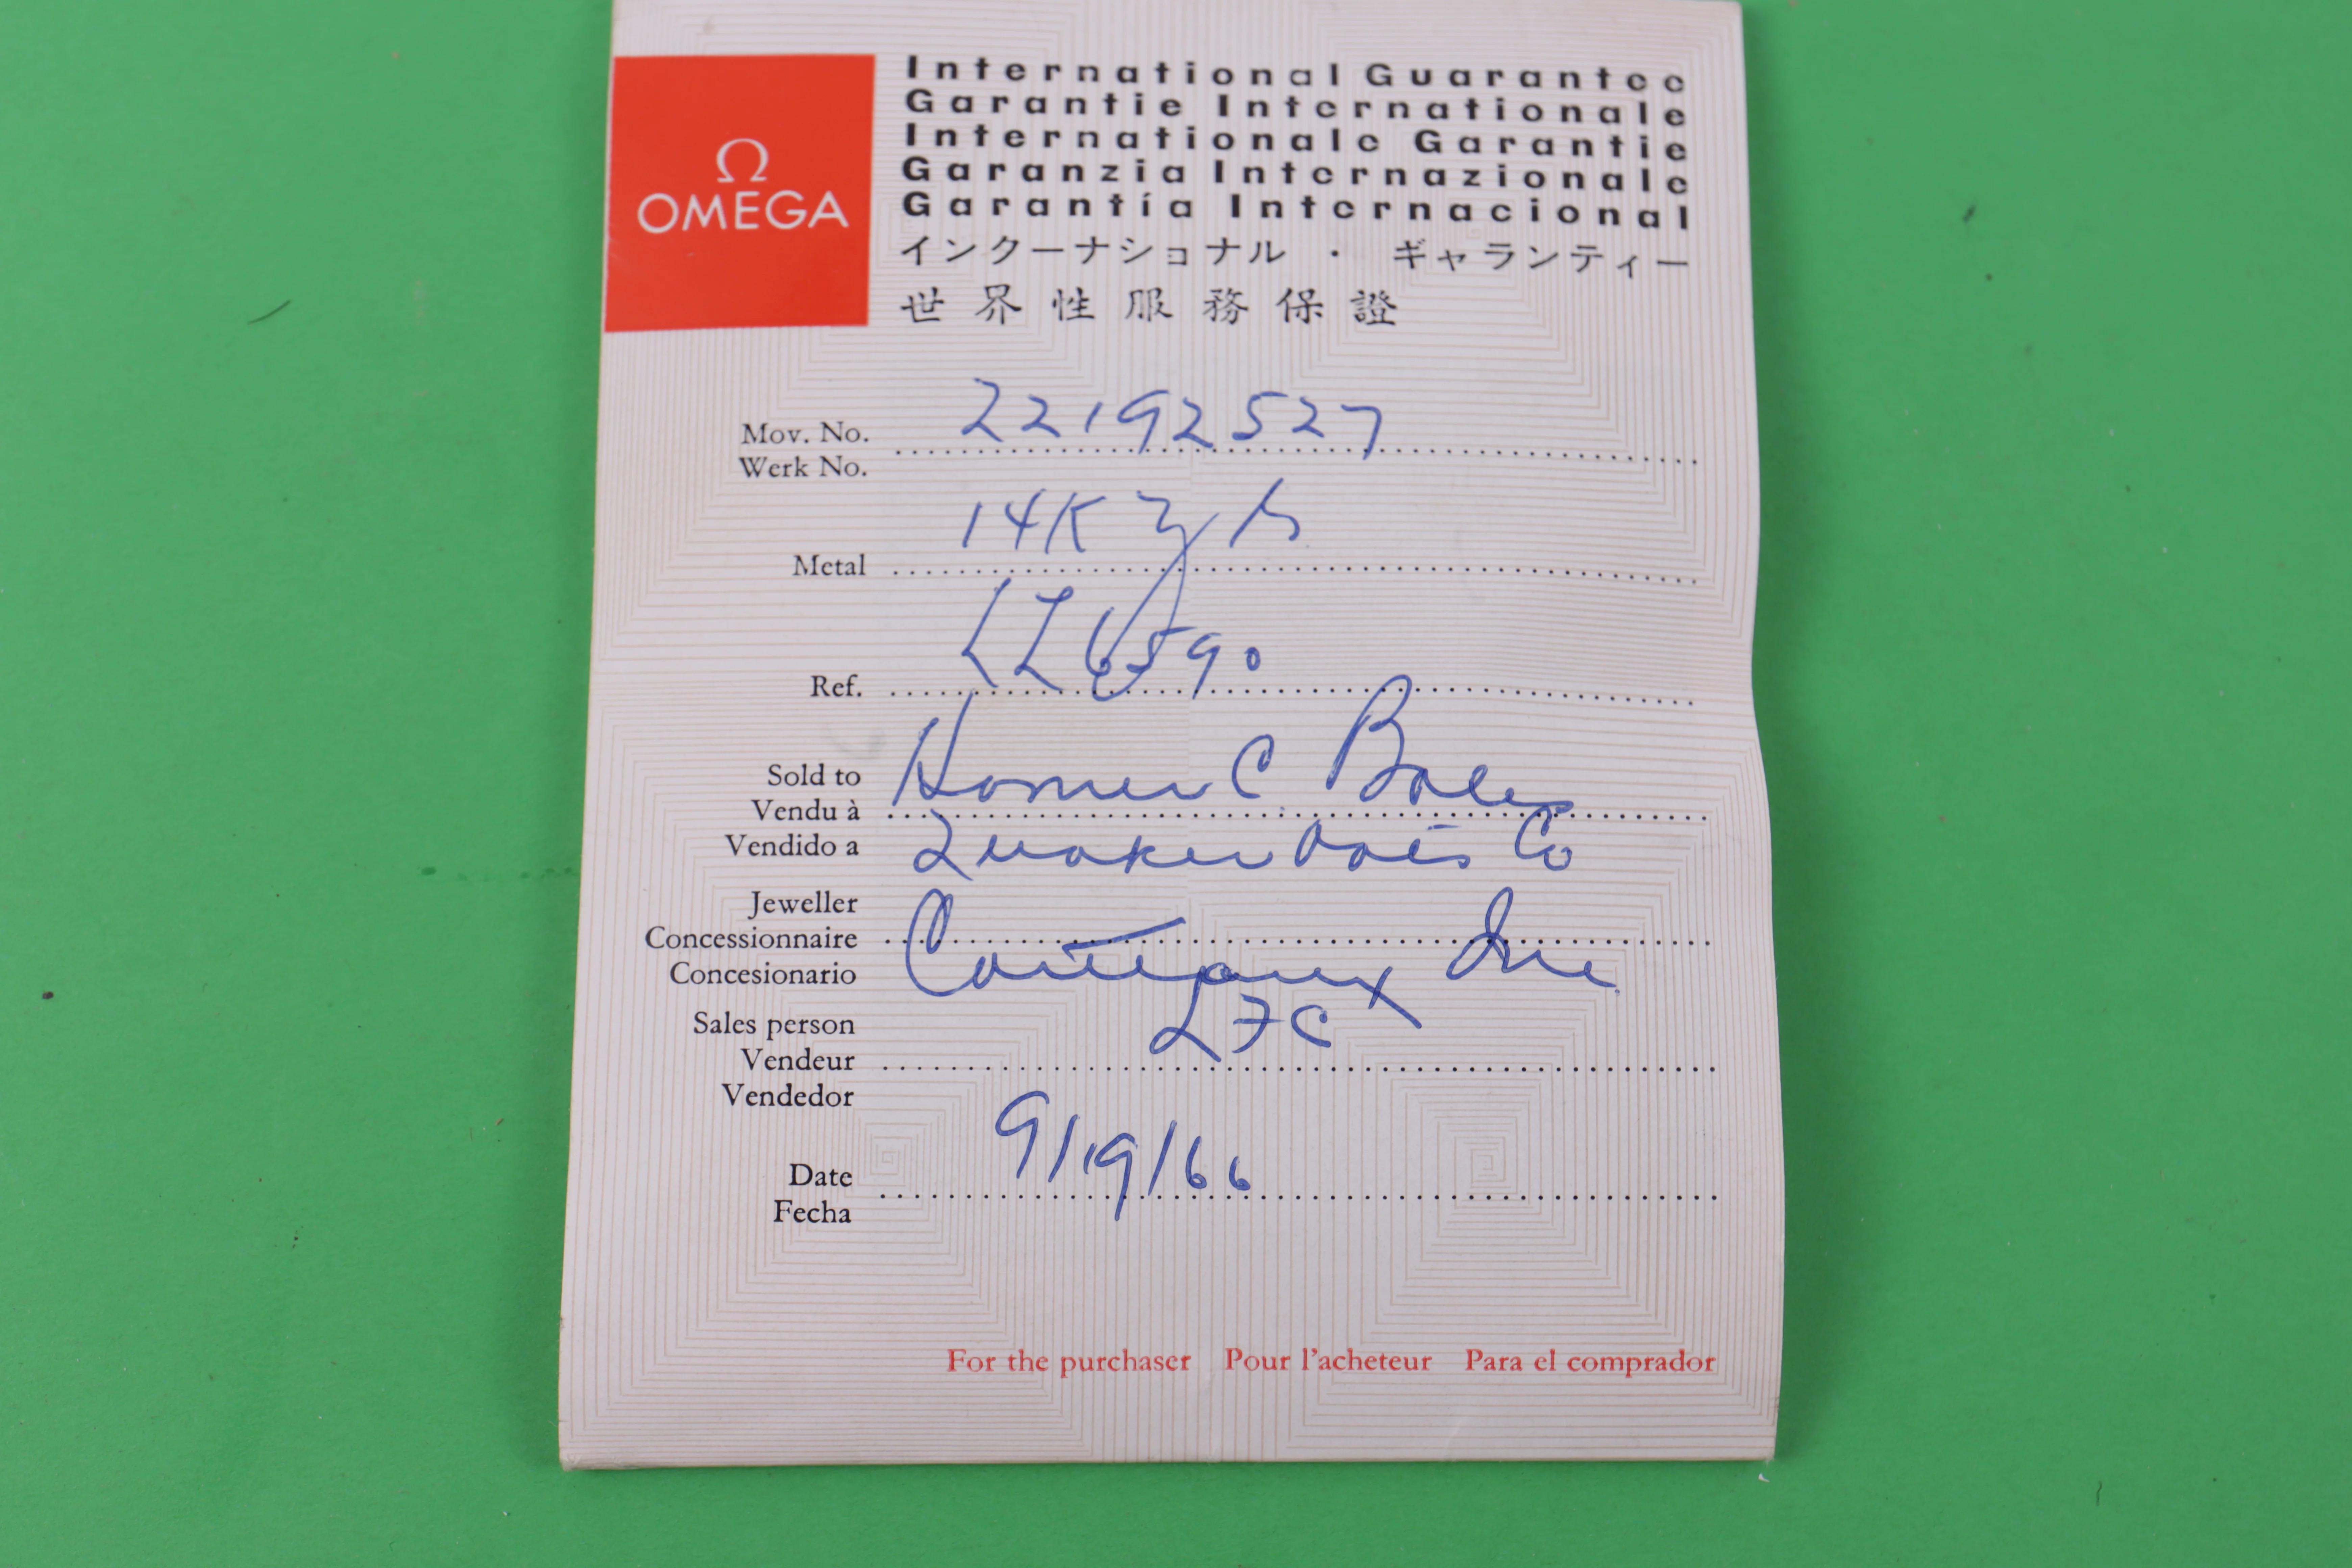 Ω
OMEGA
International Guarantee
Garantie Internationale
Internationale Garantie
Garanzia Internazionale
Garantía Internacional
インターナショナル ・ ギャランティー
世界性服務保證
Mov. No. 22192527
Werk No.
Metal 14K
Ref. LL6590
Sold to Homer C.
Vendu à
Vendido a Quaker Oats Co
Jeweller
Concessionnaire Inc
Concesionario
Sales person LFC
Vendeur
Vendedor
Date 9/19/66
Fecha
For the purchaser Pour l'acheteur Para el comprador